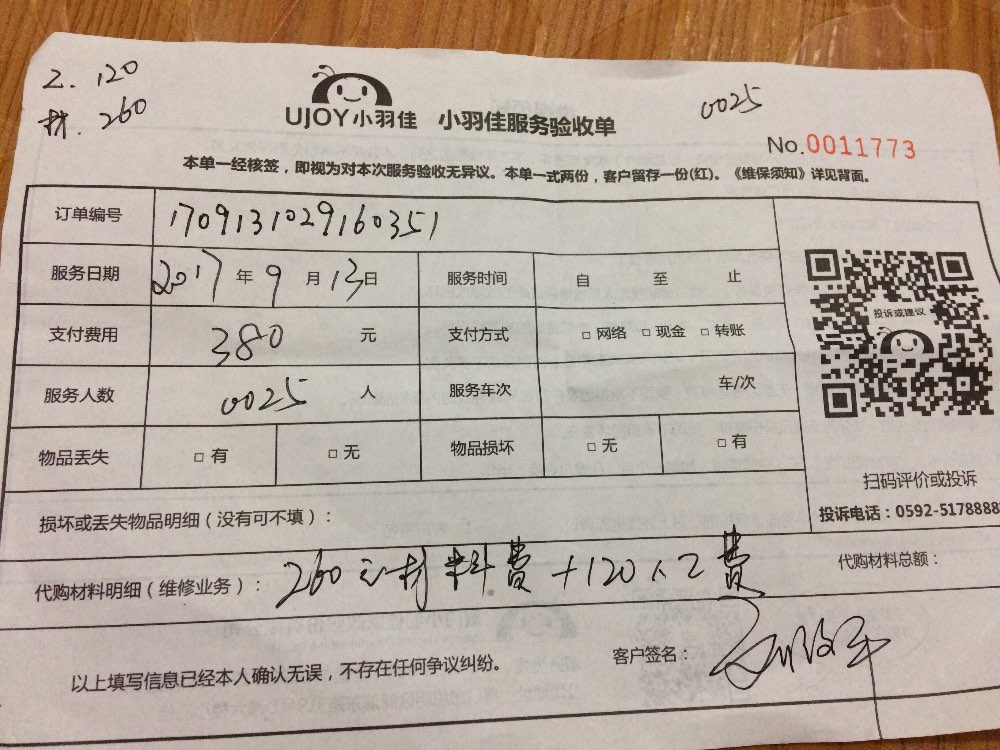 工.120
材.260
UJOY小羽佳 小羽佳服务验收单
0025
No.0011773
本单一经核签，即视为对本次服务验收无异议。本单一式两份，客户留存一份(红)。《维保须知》详见背面。
订单编号 1709131029160351
服务日期 2017年9月13日 服务时间 自 至 止
支付费用 380 元 支付方式 □网络 □现金 □转账
服务人数 0025 人 服务车次 车/次
物品丢失 □有 □无 物品损坏 □无 □有
投诉或建议
扫码评价或投诉
投诉电话：0592-5178888
损坏或丢失物品明细（没有可不填）：
代购材料明细（维修业务）：260元材料费+120人工费 代购材料总额：
以上填写信息已经本人确认无误，不存在任何争议纠纷。 客户签名：